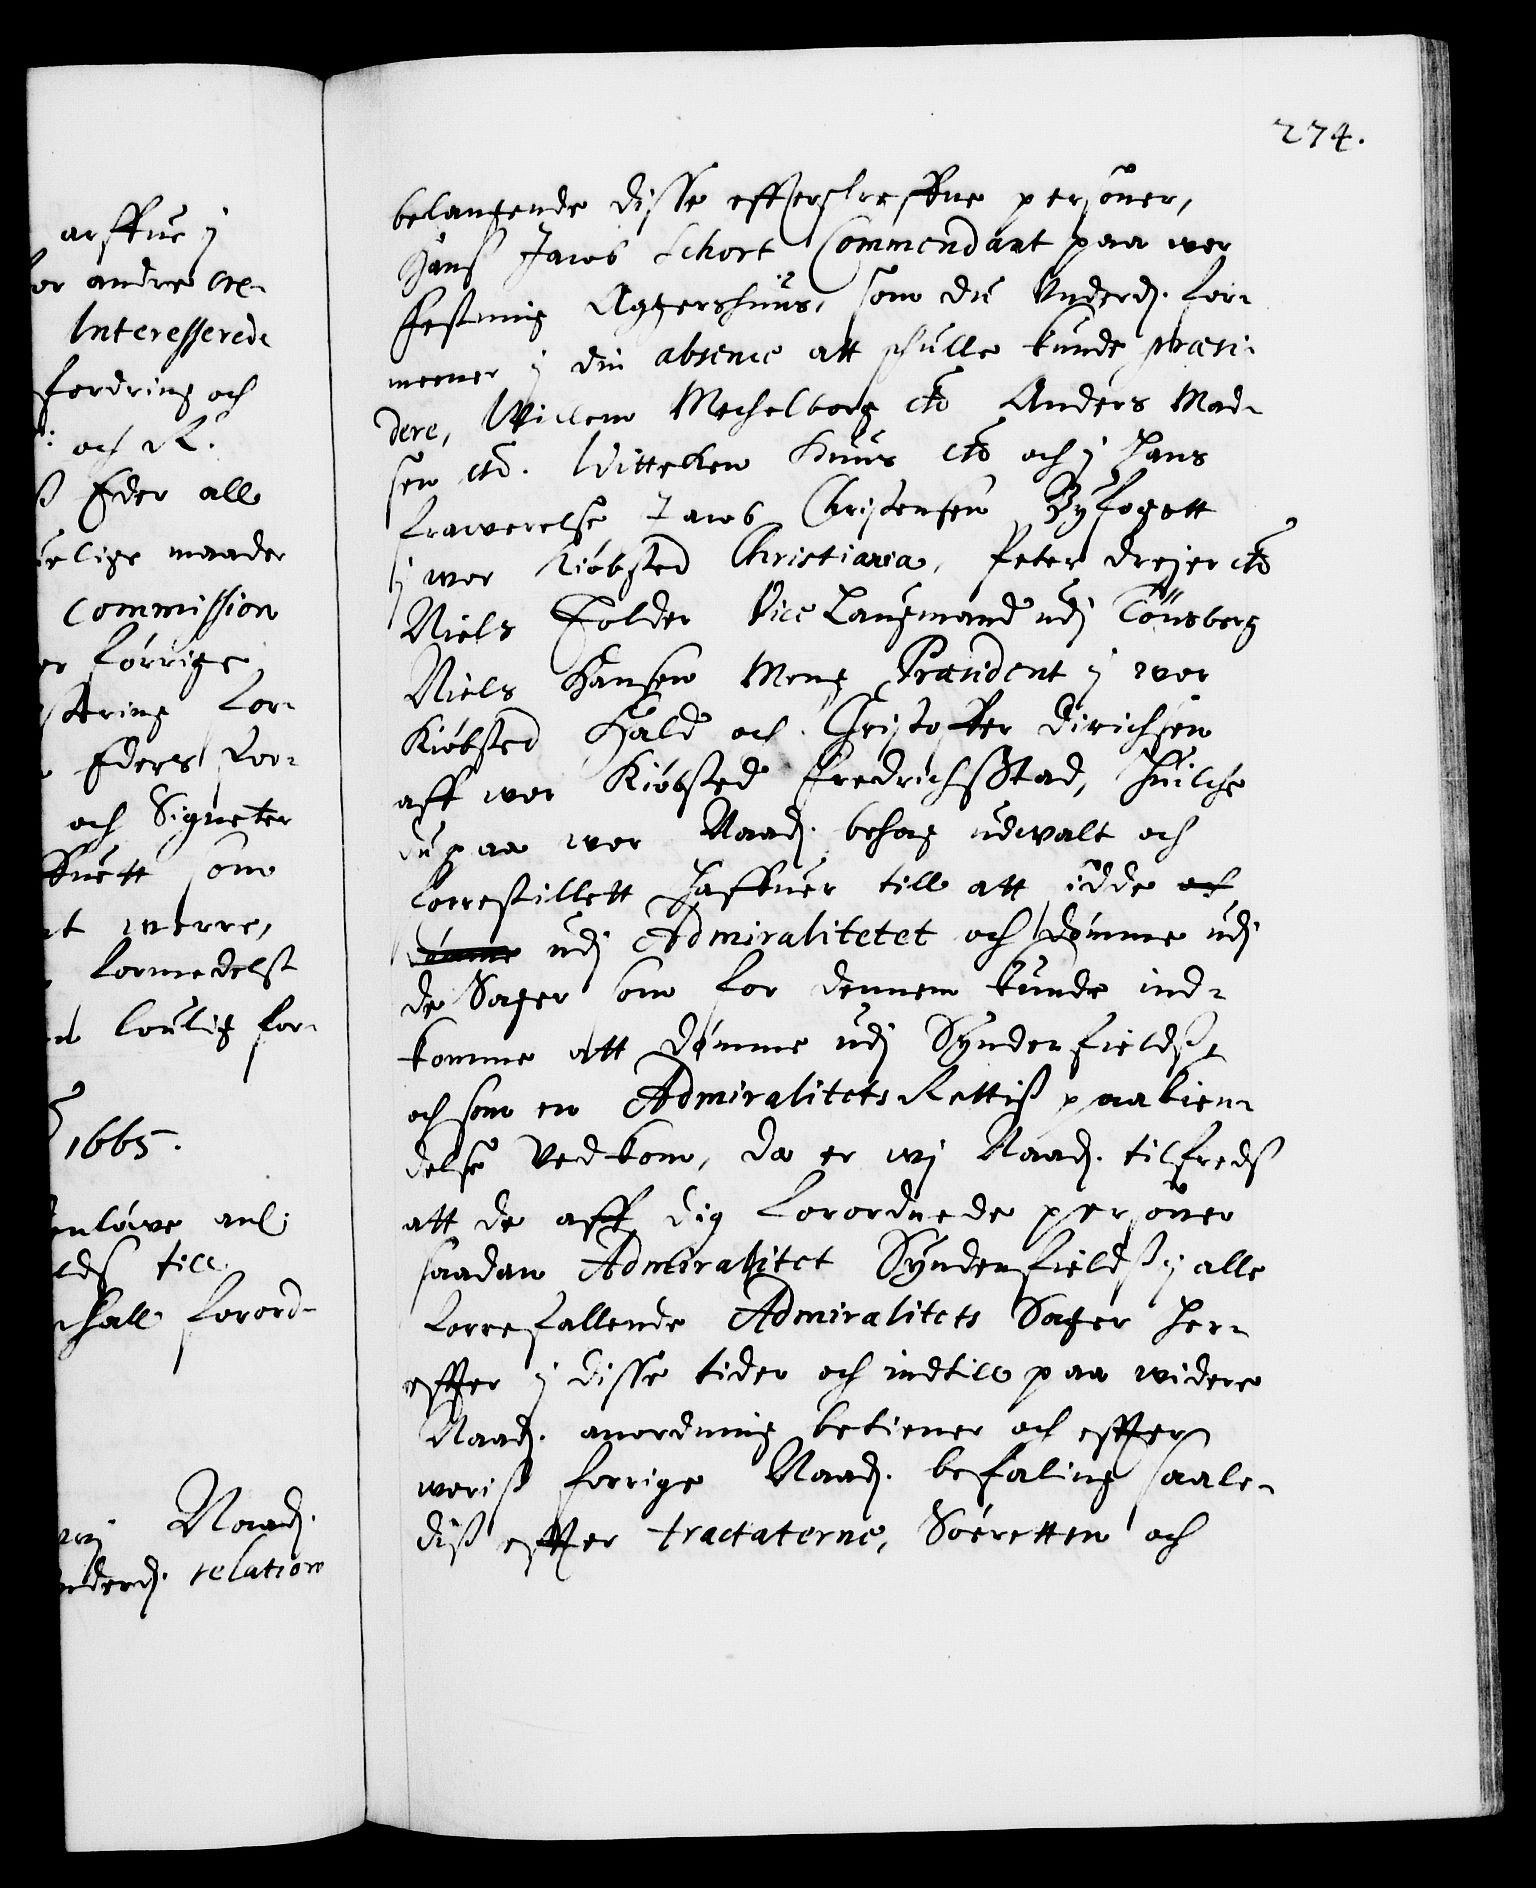 274.
arffue j
for andre Cre-
Interesserede
fordring och
och R.
ß Eder alle
uelige maader
Commission
er förrige
string for-
Eders for-
och Signeter
som
werre,
formedelst
louligh for-
1665.
enlöwe anl:
till
schall forord-
wij Naadj.
underdj. relation
belangende disse effterskreffne persöner,
Hans Jacob Schort Commendant paa wor
Festning Aggershuus, som du Underdj. for-
meener j din absence att schulle kunde præsi-
dere, Willem Mechelborg etc Anders Mad-
sen etc. Witteken Huus etc och j hans
frawerelse Jacob Christensen Byfogett
j wor Kiöbsted Christiania, Peter Dreyer etc
Niels Folder Vice Laugmand udj Tönsberg
Niels Hansen Meng Præsident j wor
Kiöbsted Hald och Christoffer Dirichsen
aff wor Kiöbsted FredrichßStad, huilche
du paa wor Naadj. behag udwalt och
forrestillett haffuer till att sidde och
dömme udj Admiralitetet och dömme udj
de Sager som for dennem kunde ind-
komme att dömme udj Syndenfieldß,
och som en Admiralitets Rettiß paakien-
delse Vedkom, da er wj Naadj. tilfredß
att de aff dig forordnede persöner
saadan Admiralitet Syndenfieldß j alle
forrefallende Admiralitets Sager her-
effter j disse tider och indtill paa widere
Naadj. anordning betiener och effter
woriß forrige Naadj. befaling saale-
diß effter tractaterne, Söeretten och